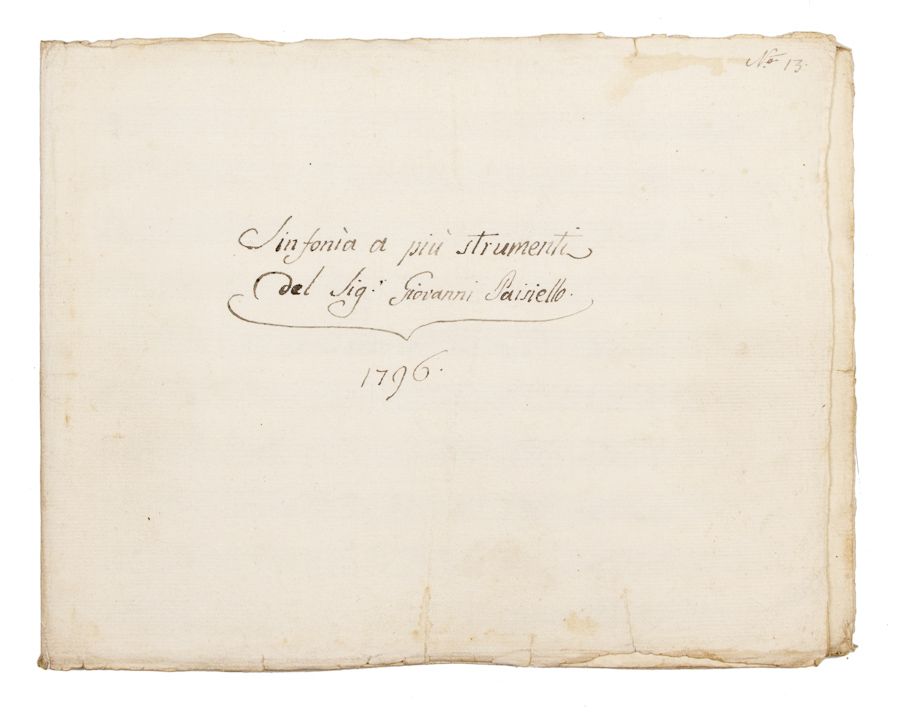 N.º 13.
Sinfonìa a più strumenti
Del Sig.r Giovanni Paisiello.
1796.